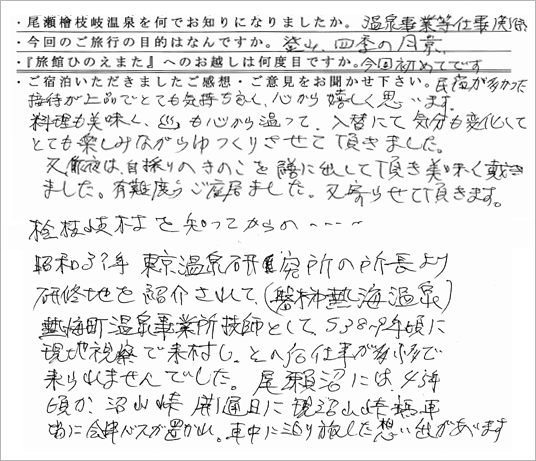 ・尾瀬檜枝岐温泉を何でお知りになりましたか。温泉事業等仕事関係
・今回のご旅行の目的はなんですか。登山、四季の風景
・『旅館ひのえまた』へのお越しは何度目ですか。今回初めてです
・ご宿泊いただきましたご感想・ご意見をお聞かせ下さい。民宿が多かった
接待が上品でとても気持ち良く、心から嬉しく思います。
料理も美味し、心から温って、入替にて気分も変化して
とても楽しみながらゆっくりさせて頂きました。
又、前夜は、自採りのきのこを膳に出して頂き美味く戴き
ました。有難度うご座居ました。又寄らせて頂きます。
桧枝岐村を知ってからの
昭和37年 東京温泉研究所の所長より
研修地を紹介されて、(磐梯熱海温泉)
熱海町温泉事業所技師として、S38〜9年頃に
現地視察で来村し、仕事が多忙で
来られませんでした。尾瀬沼には、45年
頃か、沼山峠開通日に現沼山峠
に会津バスが置かれ、車中に泊り旅した想い出があります